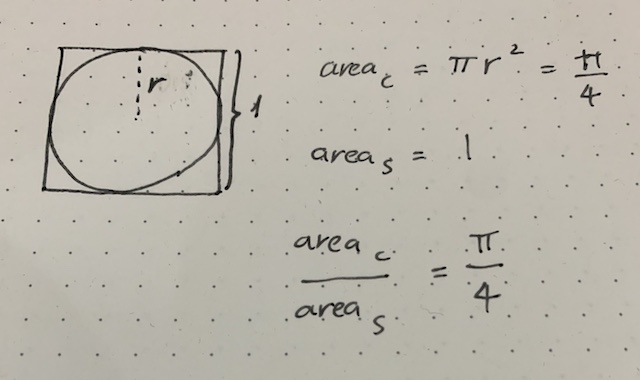 r
1
area_c = πr² = π/4
area_s = 1
area_c / area_s = π/4